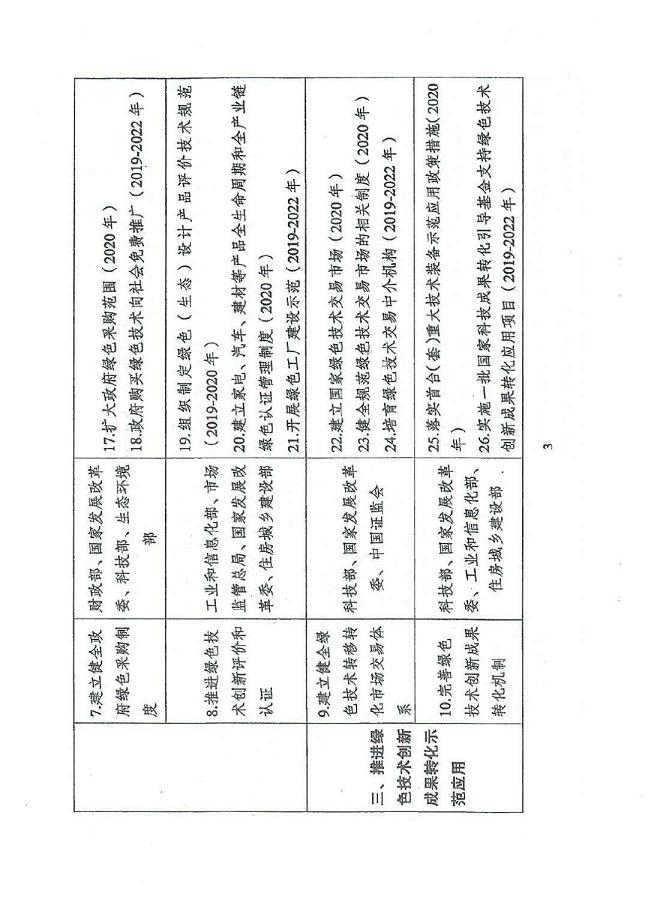 7.建立健全政
府绿色采购制
度
财政部、国家发展改革
委、科技部、生态环境
部
17.扩大政府绿色采购范围（2020 年）
18.政府购买绿色技术向社会免费推广（2019-2022 年）
8.推进绿色技
术创新评价和
认证
工业和信息化部、市场
监管总局、国家发展改
革委、住房城乡建设部
19.组织制定绿色（生态）设计产品评价技术规范
（2019-2020 年）
20.建立家电、汽车、建材等产品全生命周期和全产业链
绿色认证管理制度（2020 年）
21.开展绿色工厂建设示范（2019-2022 年）
三、推进绿
色技术创新
成果转化示
范应用
9.建立健全绿
色技术转移转
化市场交易体
系
科技部、国家发展改革
委、中国证监会
22.建立国家绿色技术交易市场（2020 年）
23.健全规范绿色技术交易市场的相关制度（2020 年）
24.培育绿色技术交易中介机构（2019-2022 年）
10.完善绿色
技术创新成果
转化机制
科技部、国家发展改革
委、工业和信息化部、
住房城乡建设部
25.落实首台（套）重大技术装备示范应用政策措施（2020
年）
26.实施一批国家科技成果转化引导基金支持绿色技术
创新成果转化应用项目（2019-2022 年）
3